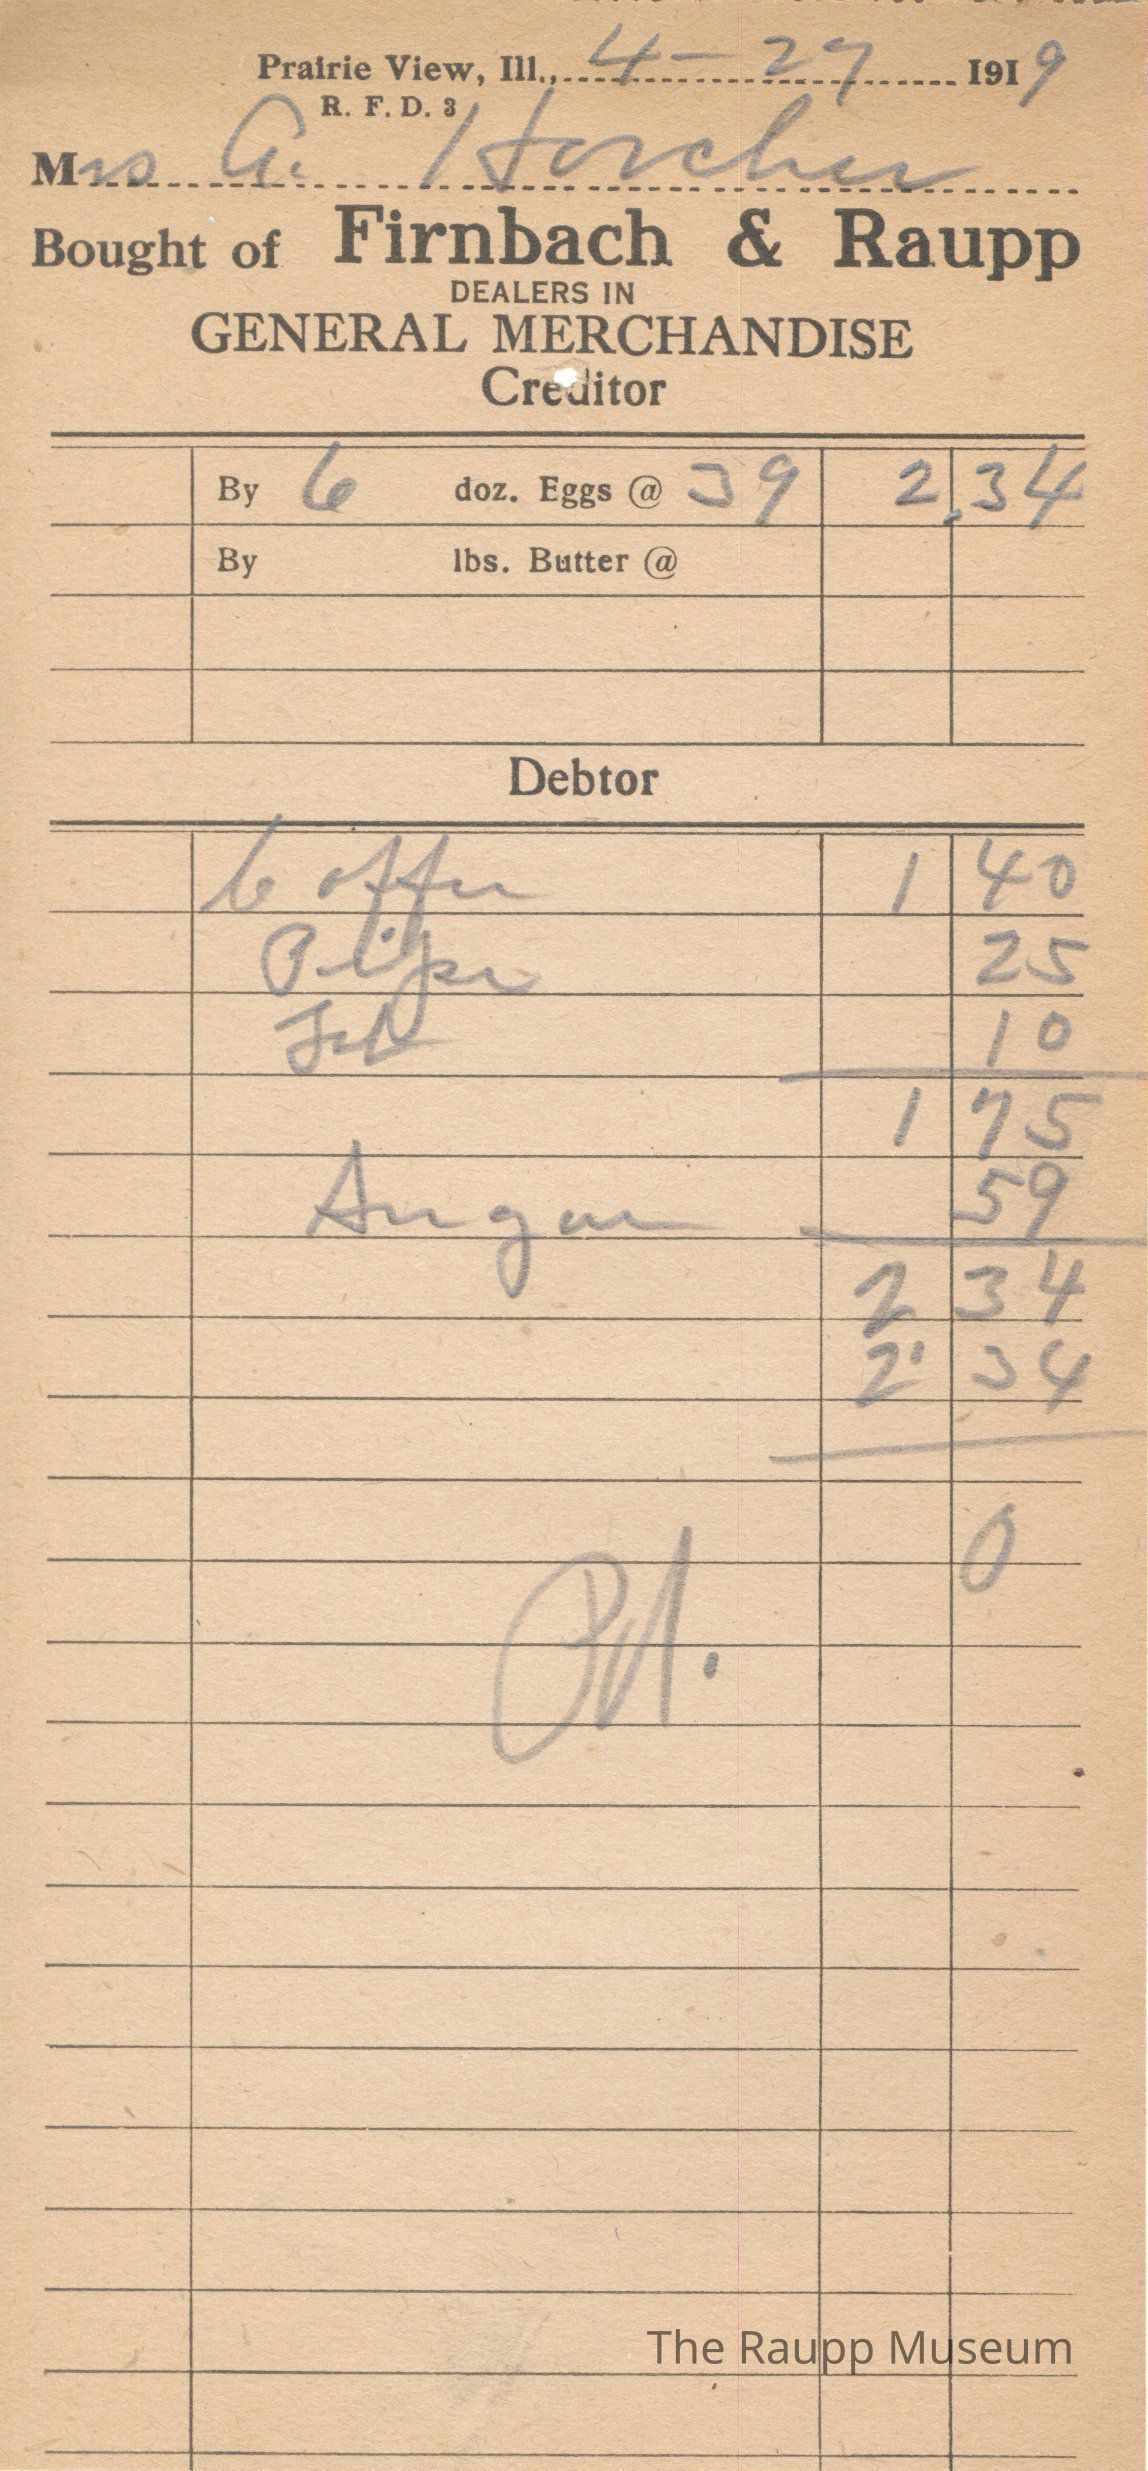 Prairie View, Ill., 4 - 27 1919
R. F. D. 3
Mrs A. Horcher
Bought of Firnbach & Raupp
DEALERS IN
GENERAL MERCHANDISE
Creditor
By 6 doz. Eggs @ 39 2.34
By lbs. Butter @
Debtor
Coffee 1 40
25
10
1 75
Sugar 59
2 34
2 34
0
Pd.
The Raupp Museum